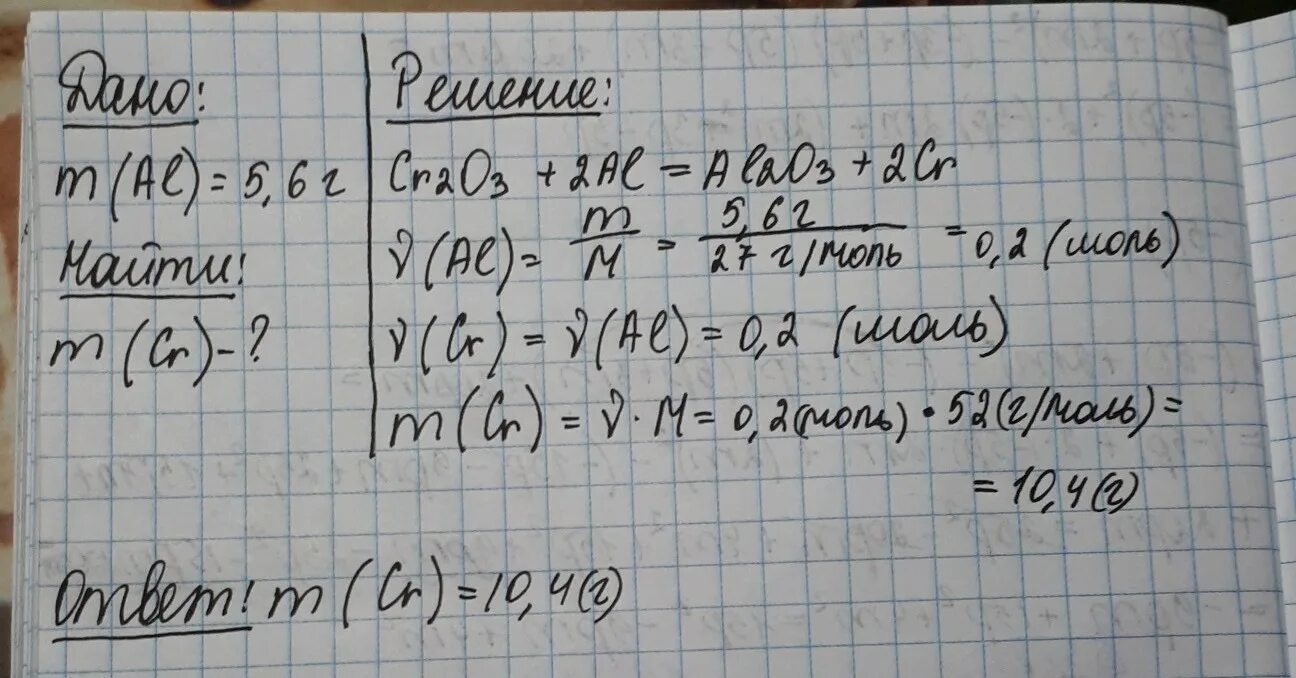 Дано:
m(Al) = 5,6 г
Найти:
m(Cr) - ?
Решение:
Cr2O3 + 2Al = Al2O3 + 2Cr
ν(Al) = m/M = 5,6 г/27 г/моль = 0,2 (моль)
ν(Cr) = ν(Al) = 0,2 (моль)
m(Cr) = ν · M = 0,2(моль) · 52(г/моль) =
= 10,4(г)
Ответ: m(Cr) = 10,4(г)